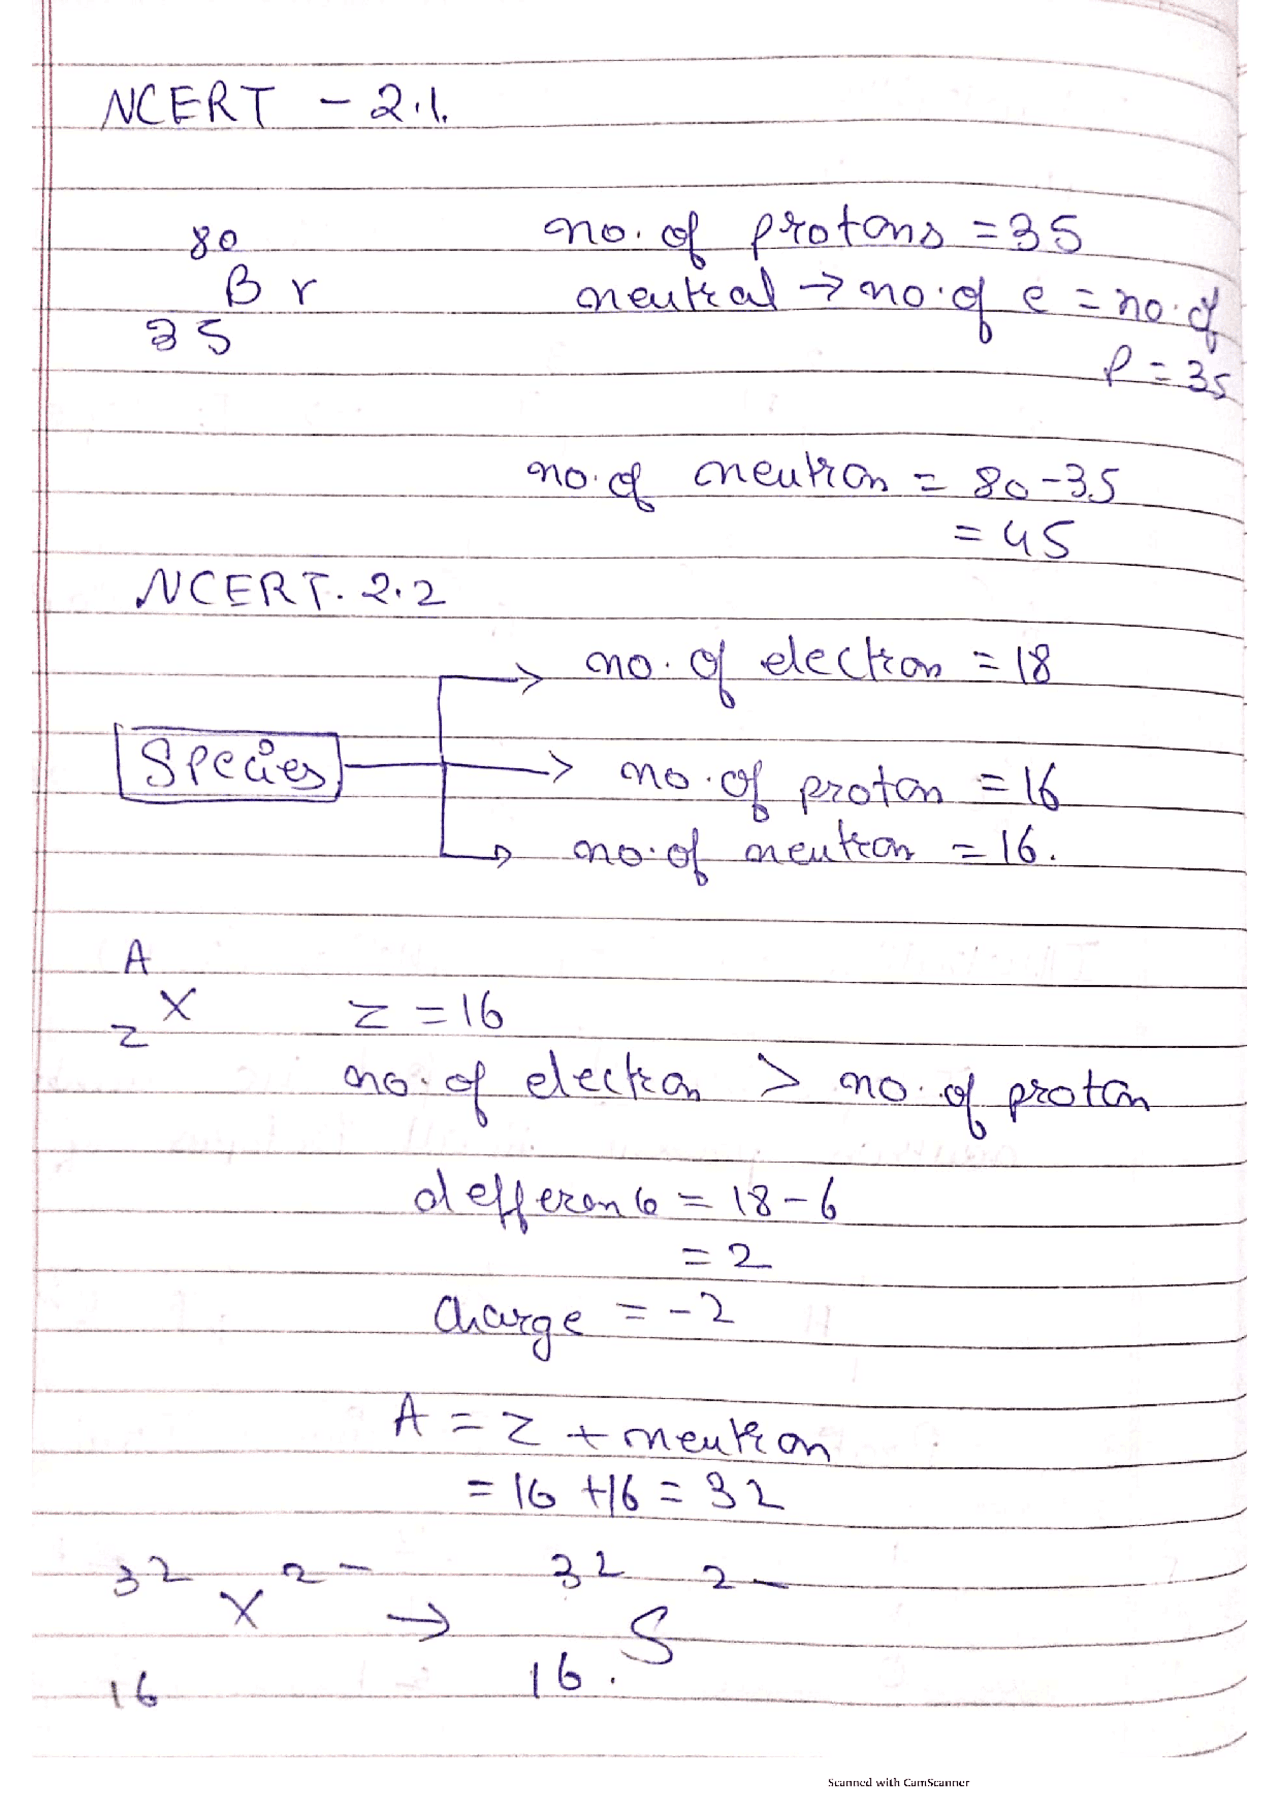 NCERT - 2.1.
80
Br
35
no. of protons = 35
neutral → no. of e = no. of
P = 35
no. of neutron = 80-35
= 45
NCERT. 2.2
no. of electron = 18
Species
no. of proton = 16
no. of neutron = 16.
A
X
Z
Z = 16
no. of electron > no. of proton
defference = 18-6
= 2
Charge = -2
A = Z + neutron
= 16 +16 = 32
32 X 2- → 32 S 2-
16 16.
Scanned with CamScanner